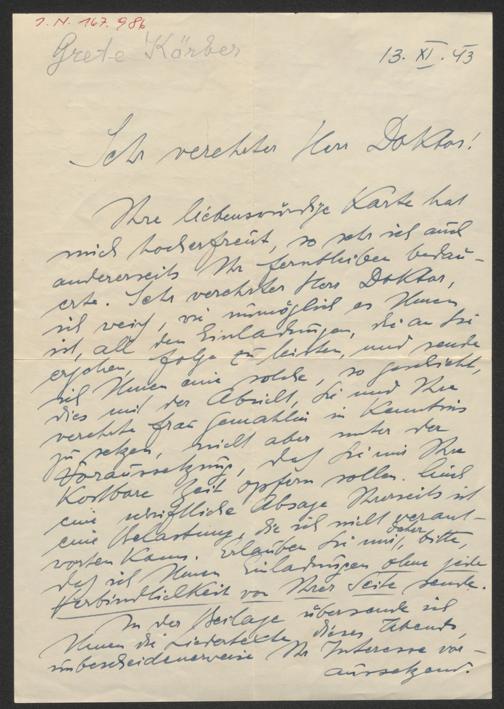 J. N. 167.986
Grete Körber
13. XI. 43
Sehr verehrter Herr Doktor!
Ihre liebenswürdige Karte hat
mich hocherfreut, so sehr ich auch
andererseits Ihr Fernbleiben bedau-
erte. Sehr verehrter Herr Doktor,
ich weiß, wie unmöglich es Ihnen
ist, all den Einladungen, die an Sie
ergehen, Folge zu leisten, und sende
ich Ihnen eine solche, so geschieht
dies mit der Absicht, Sie und Ihre
verehrte Frau Gemahlin in Kenntnis
zu setzen, nicht aber unter der
Voraussetzung, daß Sie mir Ihre
kostbare Zeit opfern sollen. Auch
eine schriftliche Absage Ihrerseits ist
eine Belastung, die ich nicht verant-
worten kann. Erlauben Sie mir, daher, bitte,
daß ich Ihnen Einladungen ohne jede
Verbindlichkeit von Ihrer Seite sende.
In der Beilage übersende ich
Ihnen die Liedertexte dieses Abends,
unbescheidenerweise Ihr Interesse vor-
aussetzend.